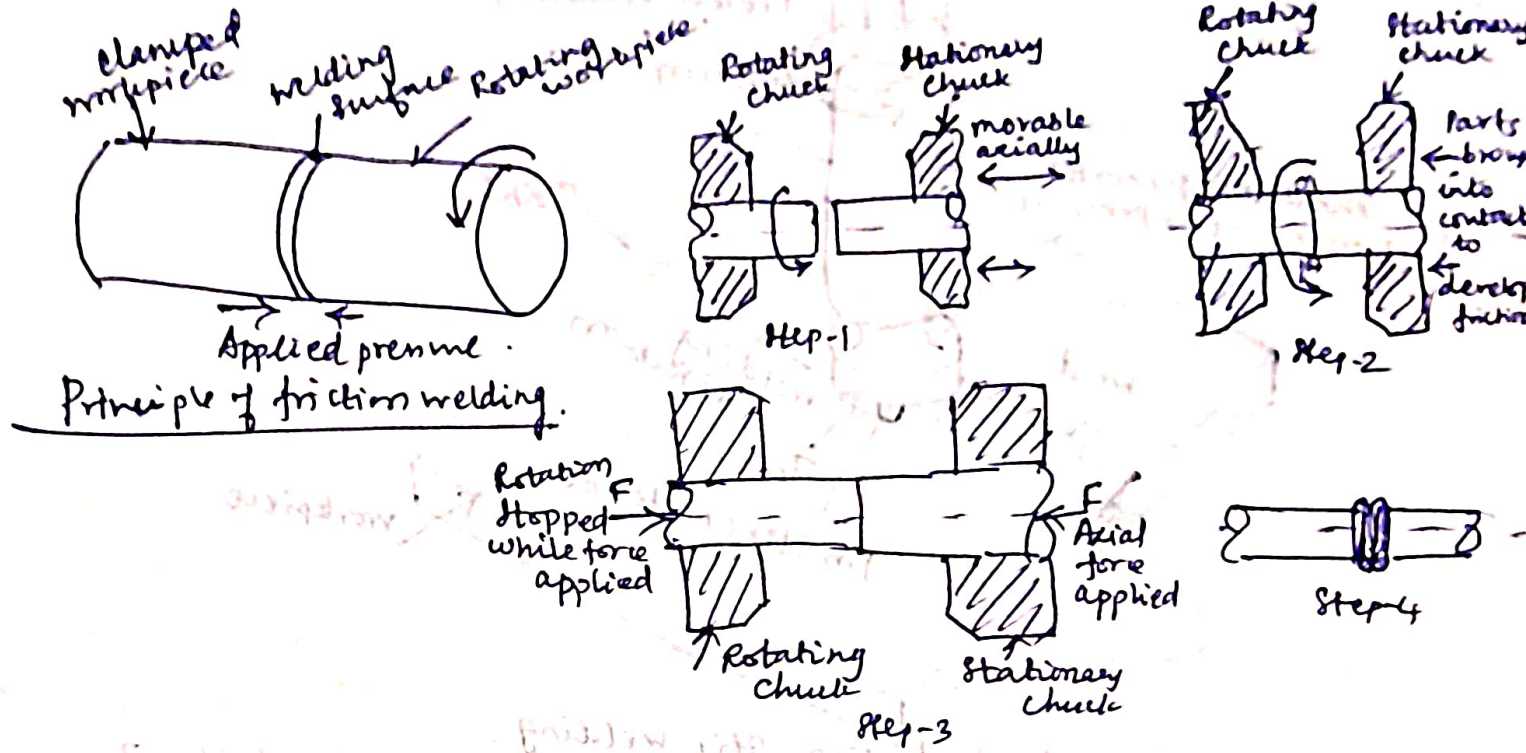 Clamped
workpiece
Welding
Surface
Rotating
workpiece
Applied pressure.
Principle of friction welding.
Rotating
Chuck
Stationary
Chuck
movable
axially
Step-1
Rotating
Chuck
Stationary
Chuck
Parts
into
contact
to
friction
Step-2
Rotation
F
stopped
while force
applied
F
Axial
force
applied
Rotating
Chuck
Stationary
Chuck
Step-3
Step-4